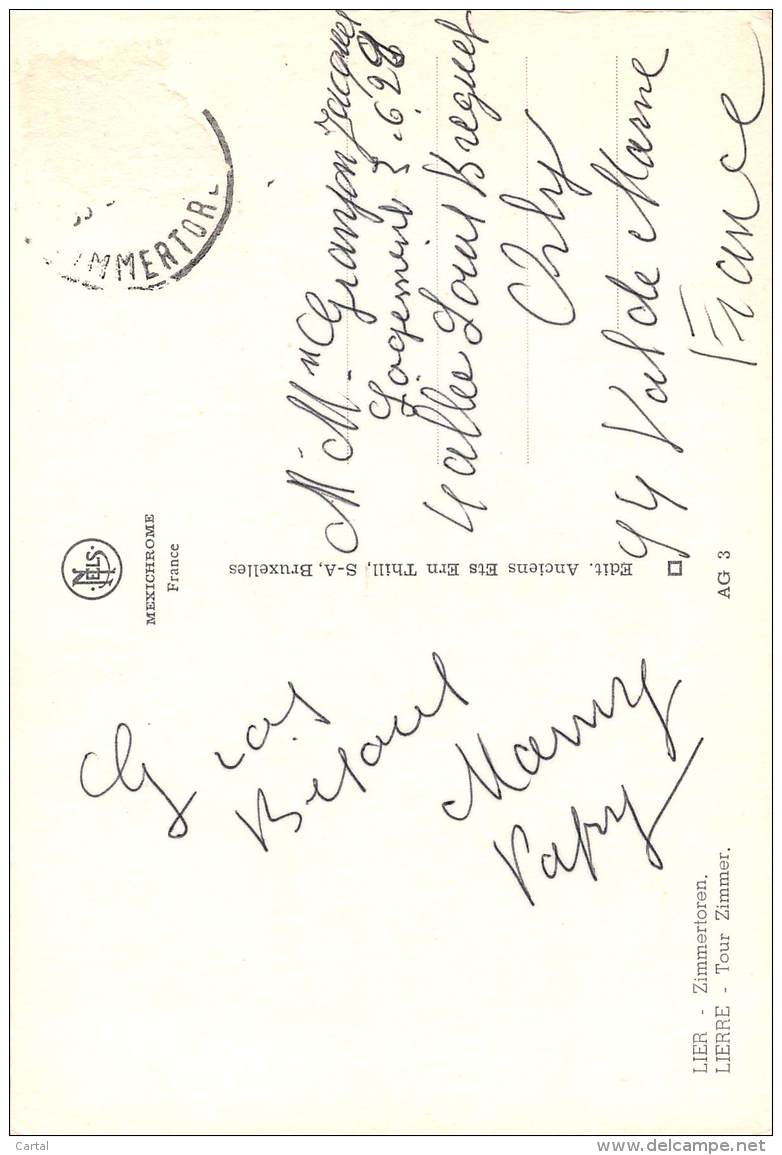 LIER - Zimmertoren.
LIERRE - Tour Zimmer.
Gros
Bisous
Mamy
Papy
NELS
MEXICHROME
France
Edit. Anciens Ets Ern Thill, S-A, Bruxelles
AG 3
IMMERTOR
Mr Mme Granjon Jacques
Logement 3.628
4 allée Louis Breguet
Orly
94 Val de Marne
France
Cartal
www.delcampe.net